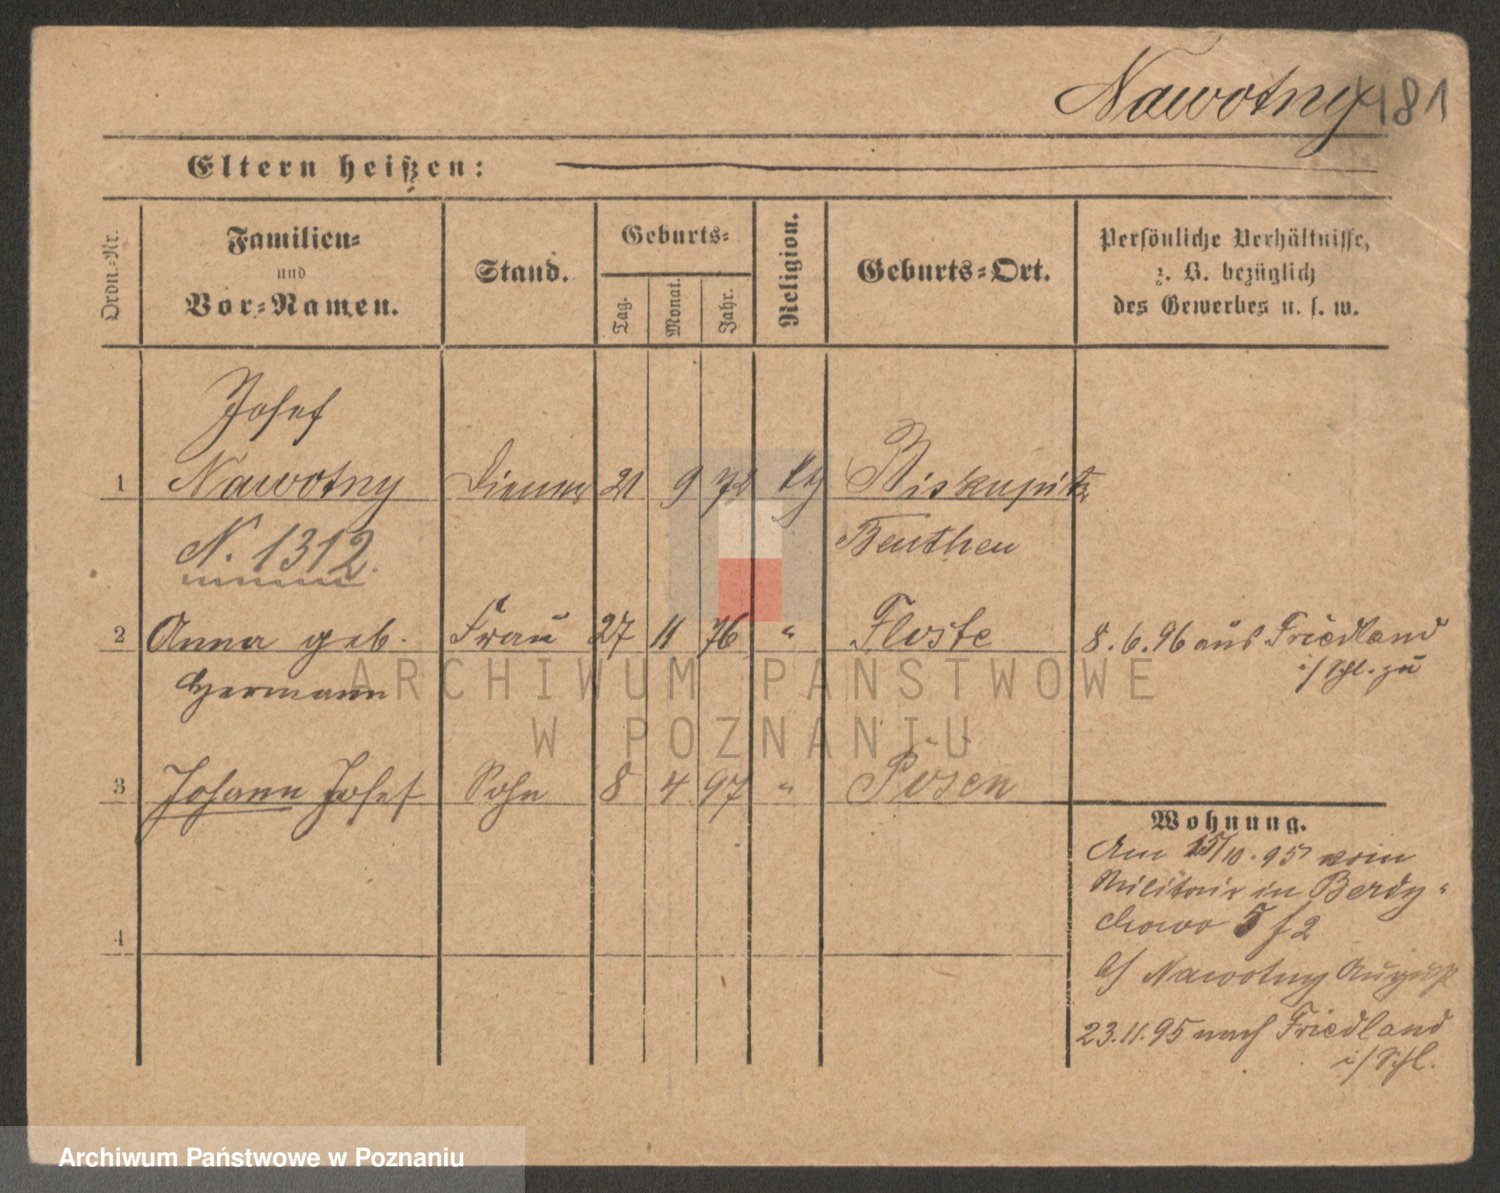 Nawotny 181
Eltern heißen:
Ordn.-Nr.
Familien-
und
Vor-Namen.
Stand.
Geburts-
Tag.
Monat.
Jahr.
Religion.
Geburts-Ort.
Persönliche Verhältnisse,
z. B. bezüglich
des Gewerbes u. s. w.
Josef
1 Nawotny Diener 21 9 72 kth Biskupitz
N. 1312. Beuthen
2 Anna geb. Frau 27 11 76 " Floste 8.6.96 aus Friedland
Hermann i/Schl. zu
3 Johann Josef Sohn 8 4 97 " Posen
Wohnung.
Am 15/10.95 vom
Militair in Berdy-
chowo 5 f 2
b/ Nawotny August
4
23.11.95 nach Friedland
i/Schl.
ARCHIWUM PAŃSTWOWE
W POZNANIU
Archiwum Państwowe w Poznaniu